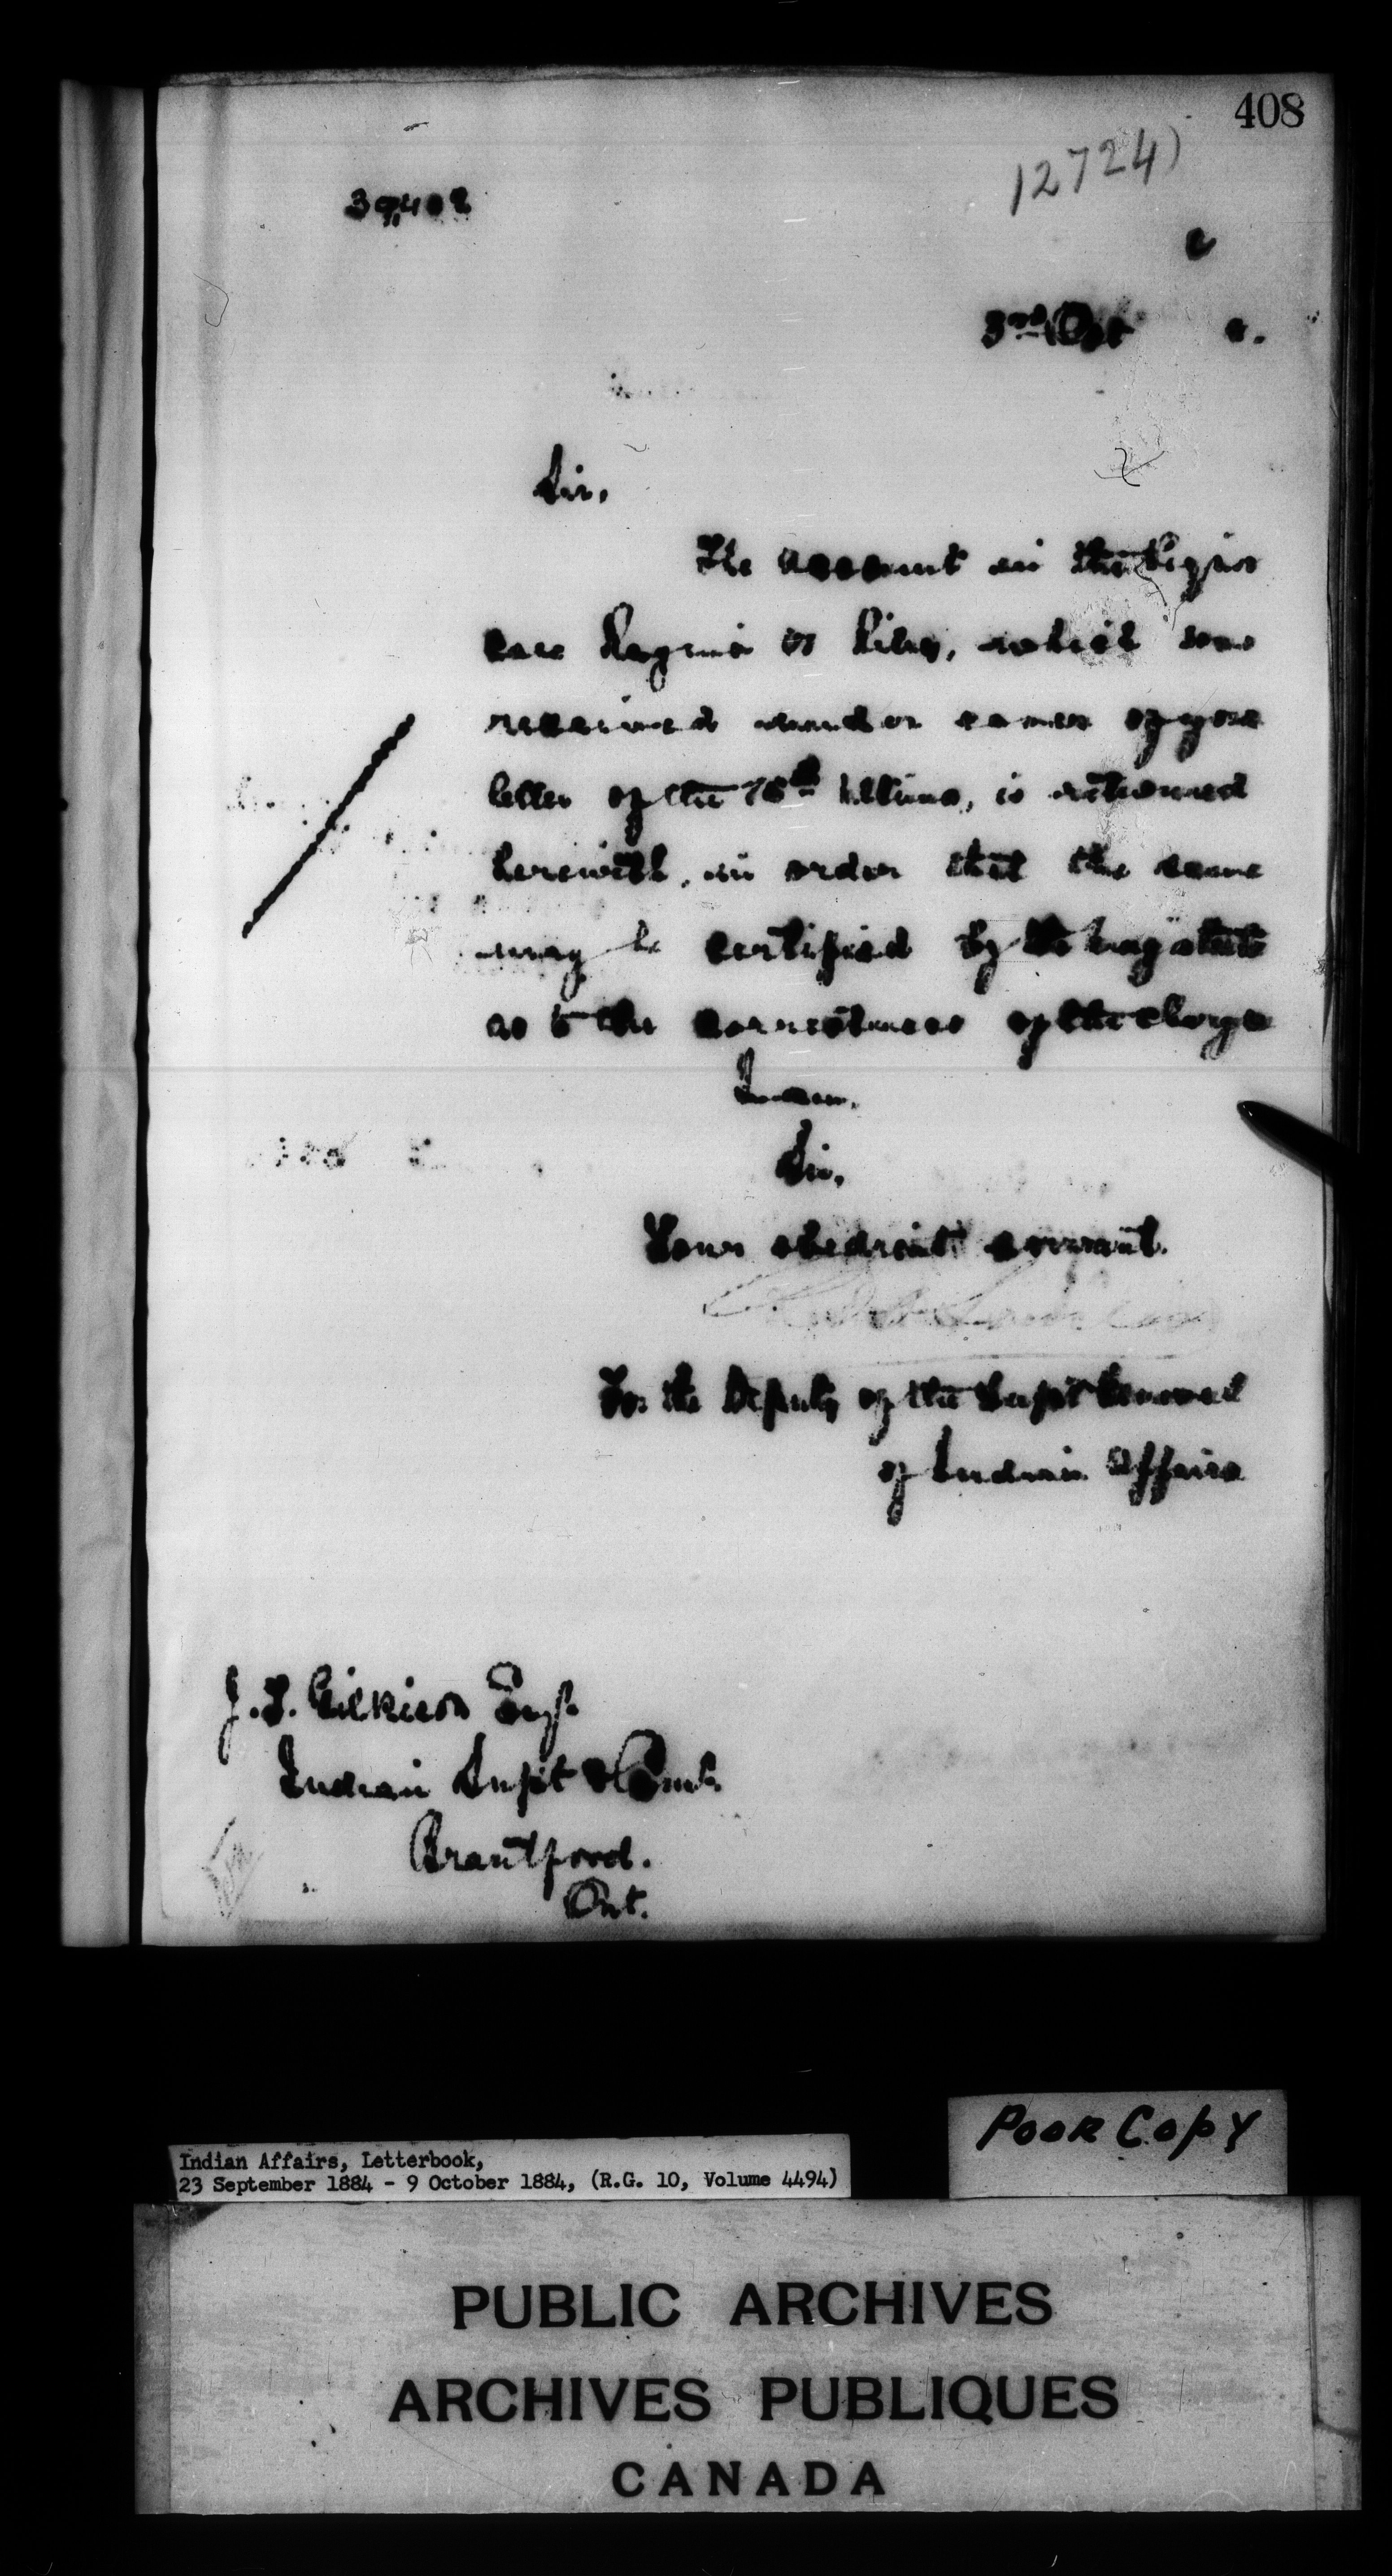 408
12724)
39,402
3rd Oct 4.
Sir,
The account in the Liquor
case Regina vs Riley, which was
received under cover of your
letter of the 15th Ultimo, is returned
herewith, in order that the same
may be certified by the Magistrate
as to the correctness of the charges
I am,
Sir,
Your obedient servant.
For the Deputy of the Supt General
of Indian Affairs
J.T. Gilkison Esqr
Indian Supt & Comr
Brantford.
Ont.
Poor Copy
Indian Affairs, Letterbook,
23 September 1884 - 9 October 1884, (R.G. 10, Volume 4494)
PUBLIC ARCHIVES
ARCHIVES PUBLIQUES
CANADA